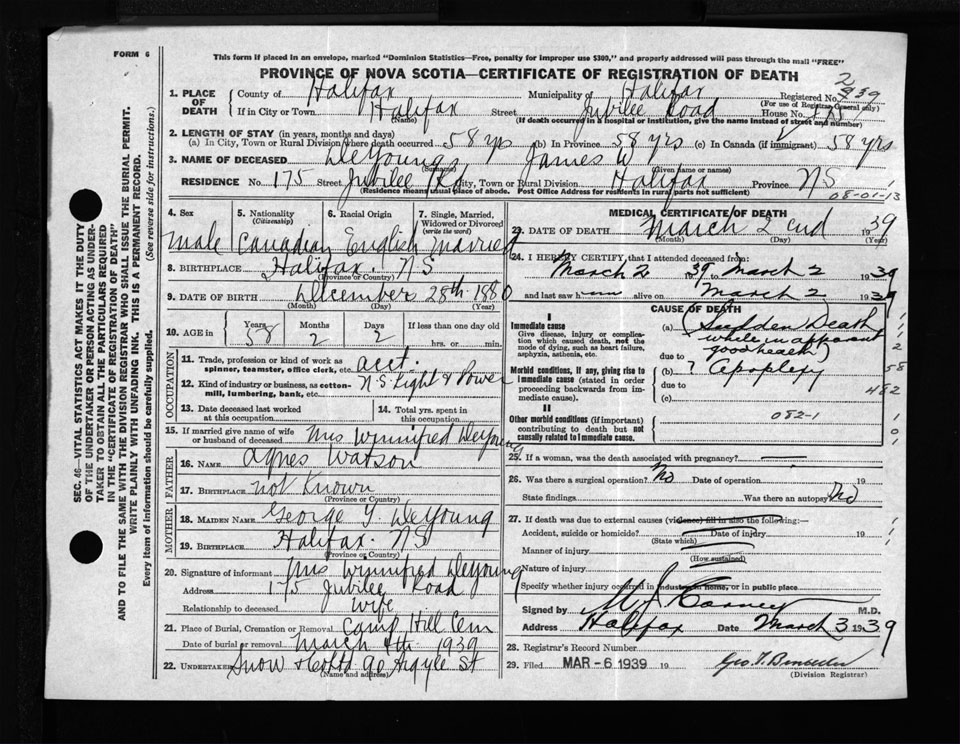 FORM 6
This form if placed in an envelope, marked "Dominion Statistics—Free, penalty for improper use $300," and properly addressed will pass through the mail "FREE"
PROVINCE OF NOVA SCOTIA—CERTIFICATE OF REGISTRATION OF DEATH
SEC. 46—VITAL STATISTICS ACT MAKES IT THE DUTY
OF THE UNDERTAKER OR PERSON ACTING AS UNDER-
TAKER TO OBTAIN ALL THE PARTICULARS REQUIRED
IN THE "CERTIFICATE OF REGISTRATION OF DEATH"
AND TO FILE THE SAME WITH THE DIVISION REGISTRAR WHO SHALL ISSUE THE BURIAL PERMIT.
WRITE PLAINLY WITH UNFADING INK. THIS IS A PERMANENT RECORD.
Every item of information should be carefully supplied. (See reverse side for instructions.)
1. PLACE OF DEATH County of Halifax Municipality of Halifax Registered No. 939
(For use of Registrar General only)
If in City or Town Halifax Street Jubilee Road House No. 175
(Name) (If death occurred in a hospital or institution, give the name instead of street and number)
2. LENGTH OF STAY (in years, months and days)
(a) In City, Town or Rural Division where death occurred 58 yrs (b) In Province 58 yrs (c) In Canada (if immigrant) 58 yrs
3. NAME OF DECEASED DeYoung James W
(Surname) (Given name or names)
RESIDENCE No. 175 Street Jubilee Rd City, Town or Rural Division Halifax Province NS
(Residence means usual place of abode. Post Office Address for residents in rural parts not sufficient)
08-01-13
4. Sex 5. Nationality (Citizenship) 6. Racial Origin 7. Single, Married, Widowed or Divorced (write the word)
Male Canadian English Married
8. BIRTHPLACE Halifax. NS
(Province or Country)
9. DATE OF BIRTH December 28th 1880
(Month) (Day) (Year)
10. AGE in Years Months Days If less than one day old
58 2 2 hrs. or min.
OCCUPATION
11. Trade, profession or kind of work as spinner, teamster, office clerk, etc. acct.
12. Kind of industry or business, as cotton-mill, lumbering, bank, etc. N.S. Light & Power
13. Date deceased last worked at this occupation 14. Total yrs. spent in this occupation
15. If married give name of wife or husband of deceased Mrs Winnifred DeYoung
FATHER
16. NAME Agnes Watson
17. BIRTHPLACE Not Known
(Province or Country)
MOTHER
18. MAIDEN NAME George Y. DeYoung
19. BIRTHPLACE Halifax. NS
(Province or Country)
20. Signature of informant Mrs Winnifred DeYoung
Address 175 Jubilee Road
Relationship to deceased Wife
21. Place of Burial, Cremation or Removal Camp Hill Cem
Date of burial or removal March 4th 1939
22. UNDERTAKER Snow & Co Ltd 90 Argyle St
(Name and address)
MEDICAL CERTIFICATE OF DEATH
23. DATE OF DEATH March 2nd 1939
(Month) (Day) (Year)
24. I HEREBY CERTIFY, that I attended deceased from
March 2 1939 to March 2 1939
and last saw him alive on March 2 1939
CAUSE OF DEATH
I
Immediate cause
Give disease, injury or complication which caused death, not the mode of dying, such as heart failure, asphyxia, asthenia, etc.
(a) Sudden Death
while in apparent
due to good health)
Morbid conditions, if any, giving rise to immediate cause (stated in order proceeding backwards from immediate cause).
(b) ? Apoplexy
due to
(c)
58
482
II
Other morbid conditions (if important) contributing to death but not causally related to immediate cause.
082-1
25. If a woman, was the death associated with pregnancy?
26. Was there a surgical operation? No Date of operation 19
State findings Was there an autopsy? No
27. If death was due to external causes (violence) fill in also the following:—
Accident, suicide or homicide? Date of injury 19
(State which)
Manner of injury
(How sustained)
Nature of injury
Specify whether injury occurred in industry, in home, or in public place
Signed by Carney M.D.
Address Halifax Date March 3 1939
28. Registrar's Record Number
29. Filed MAR -6 1939 19
(Division Registrar)